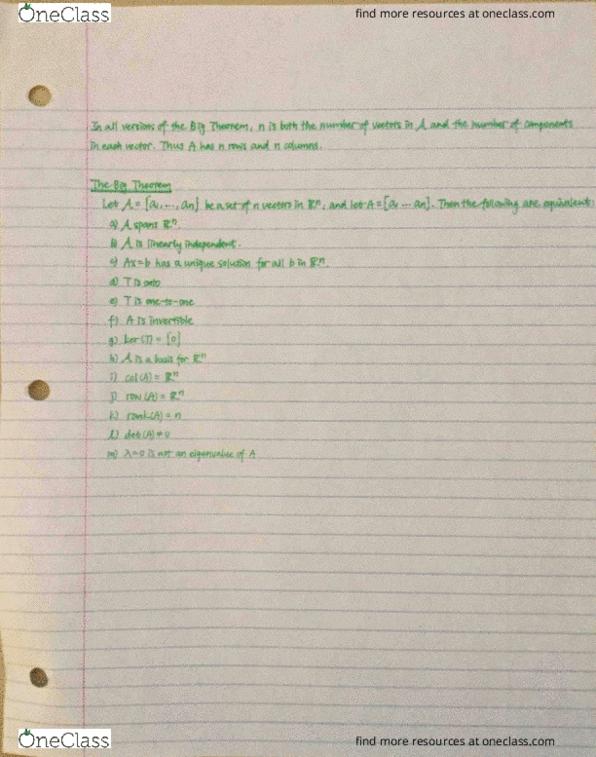 OneClass
find more resources at oneclass.com
In all versions of the Big Theorem, n is both the number of vectors in A and the number of components
in each vector. Thus A has n rows and n columns.
The Big Theorem
Let A = {a₁, ..., an} be a set of n vectors in ℝⁿ, and let A = [a₁ ... an]. Then the following are equivalent:
a) A spans ℝⁿ.
b) A is linearly independent.
c) Ax=b has a unique solution for all b in ℝⁿ.
d) T is onto
e) T is one-to-one
f) A is invertible
g) ker(T) = {0}
h) A is a basis for ℝⁿ
i) col(A) = ℝⁿ
j) row(A) = ℝⁿ
k) rank(A) = n
l) det(A) ≠ 0
m) λ=0 is not an eigenvalue of A
OneClass
find more resources at oneclass.com